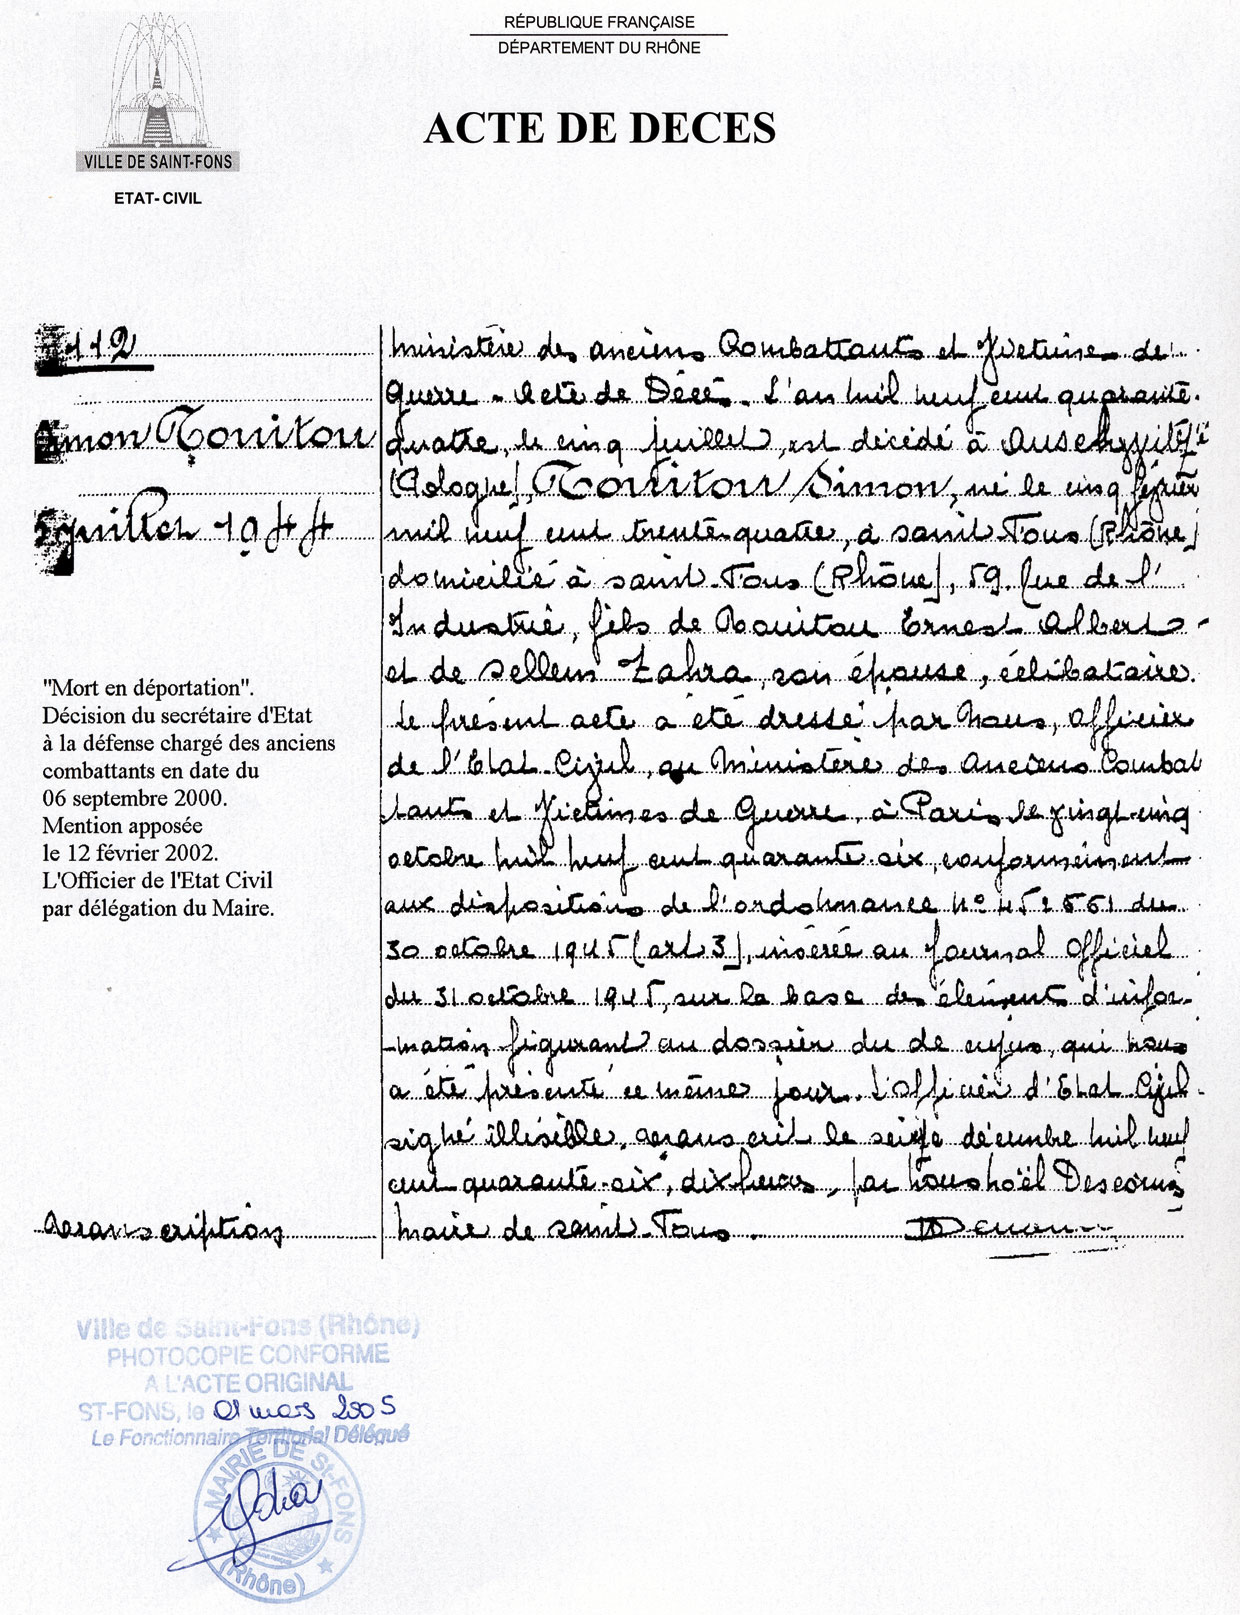 RÉPUBLIQUE FRANÇAISE
DÉPARTEMENT DU RHÔNE
VILLE DE SAINT-FONS
ETAT- CIVIL
ACTE DE DECES
112
Simon Touitou
5 juillet 1944
"Mort en déportation".
Décision du secrétaire d'Etat
à la défense chargé des anciens
combattants en date du
06 septembre 2000.
Mention apposée
le 12 février 2002.
L'Officier de l'Etat Civil
par délégation du Maire.
Transcription
Ministère des anciens Combattants et Victimes de
Guerre - Acte de Décès. L'an mil neuf cent quarante-
quatre, le cinq juillet, est décédé à Auschwitz
(Pologne), Touitou Simon, né le cinq février
mil neuf cent trente-quatre, à Saint-Fons (Rhône)
domicilié à Saint-Fons (Rhône), 59. Rue de l'
Industrie, fils de Touitou Ernest Albert
et de Sellem Zahra, son épouse, célibataire.
Le présent acte a été dressé par Nous, Officier
de l'Etat-Civil, au Ministère des Anciens Combat
tants et Victimes de Guerre, à Paris, le vingt-cinq
octobre mil neuf cent quarante-six, conformément
aux dispositions de l'ordonnance n° 45 2561 du
30 octobre 1945 (art 3), insérée au Journal Officiel
du 31 octobre 1945, sur la base des éléments d'infor-
-mation figurant au dossier du de cujus, qui nous
a été présenté ce même jour. L'officier d'Etat-Civil
signé illisible. Transcrit le seize décembre mil neuf
cent quarante-six, dix heures, par nous Noël Descours
maire de Saint-Fons.
Ville de Saint-Fons (Rhône)
PHOTOCOPIE CONFORME
A L'ACTE ORIGINAL
ST-FONS, le 01 mars 2005
Le Fonctionnaire Territorial Délégué
MAIRIE DE St-FONS
(Rhône)